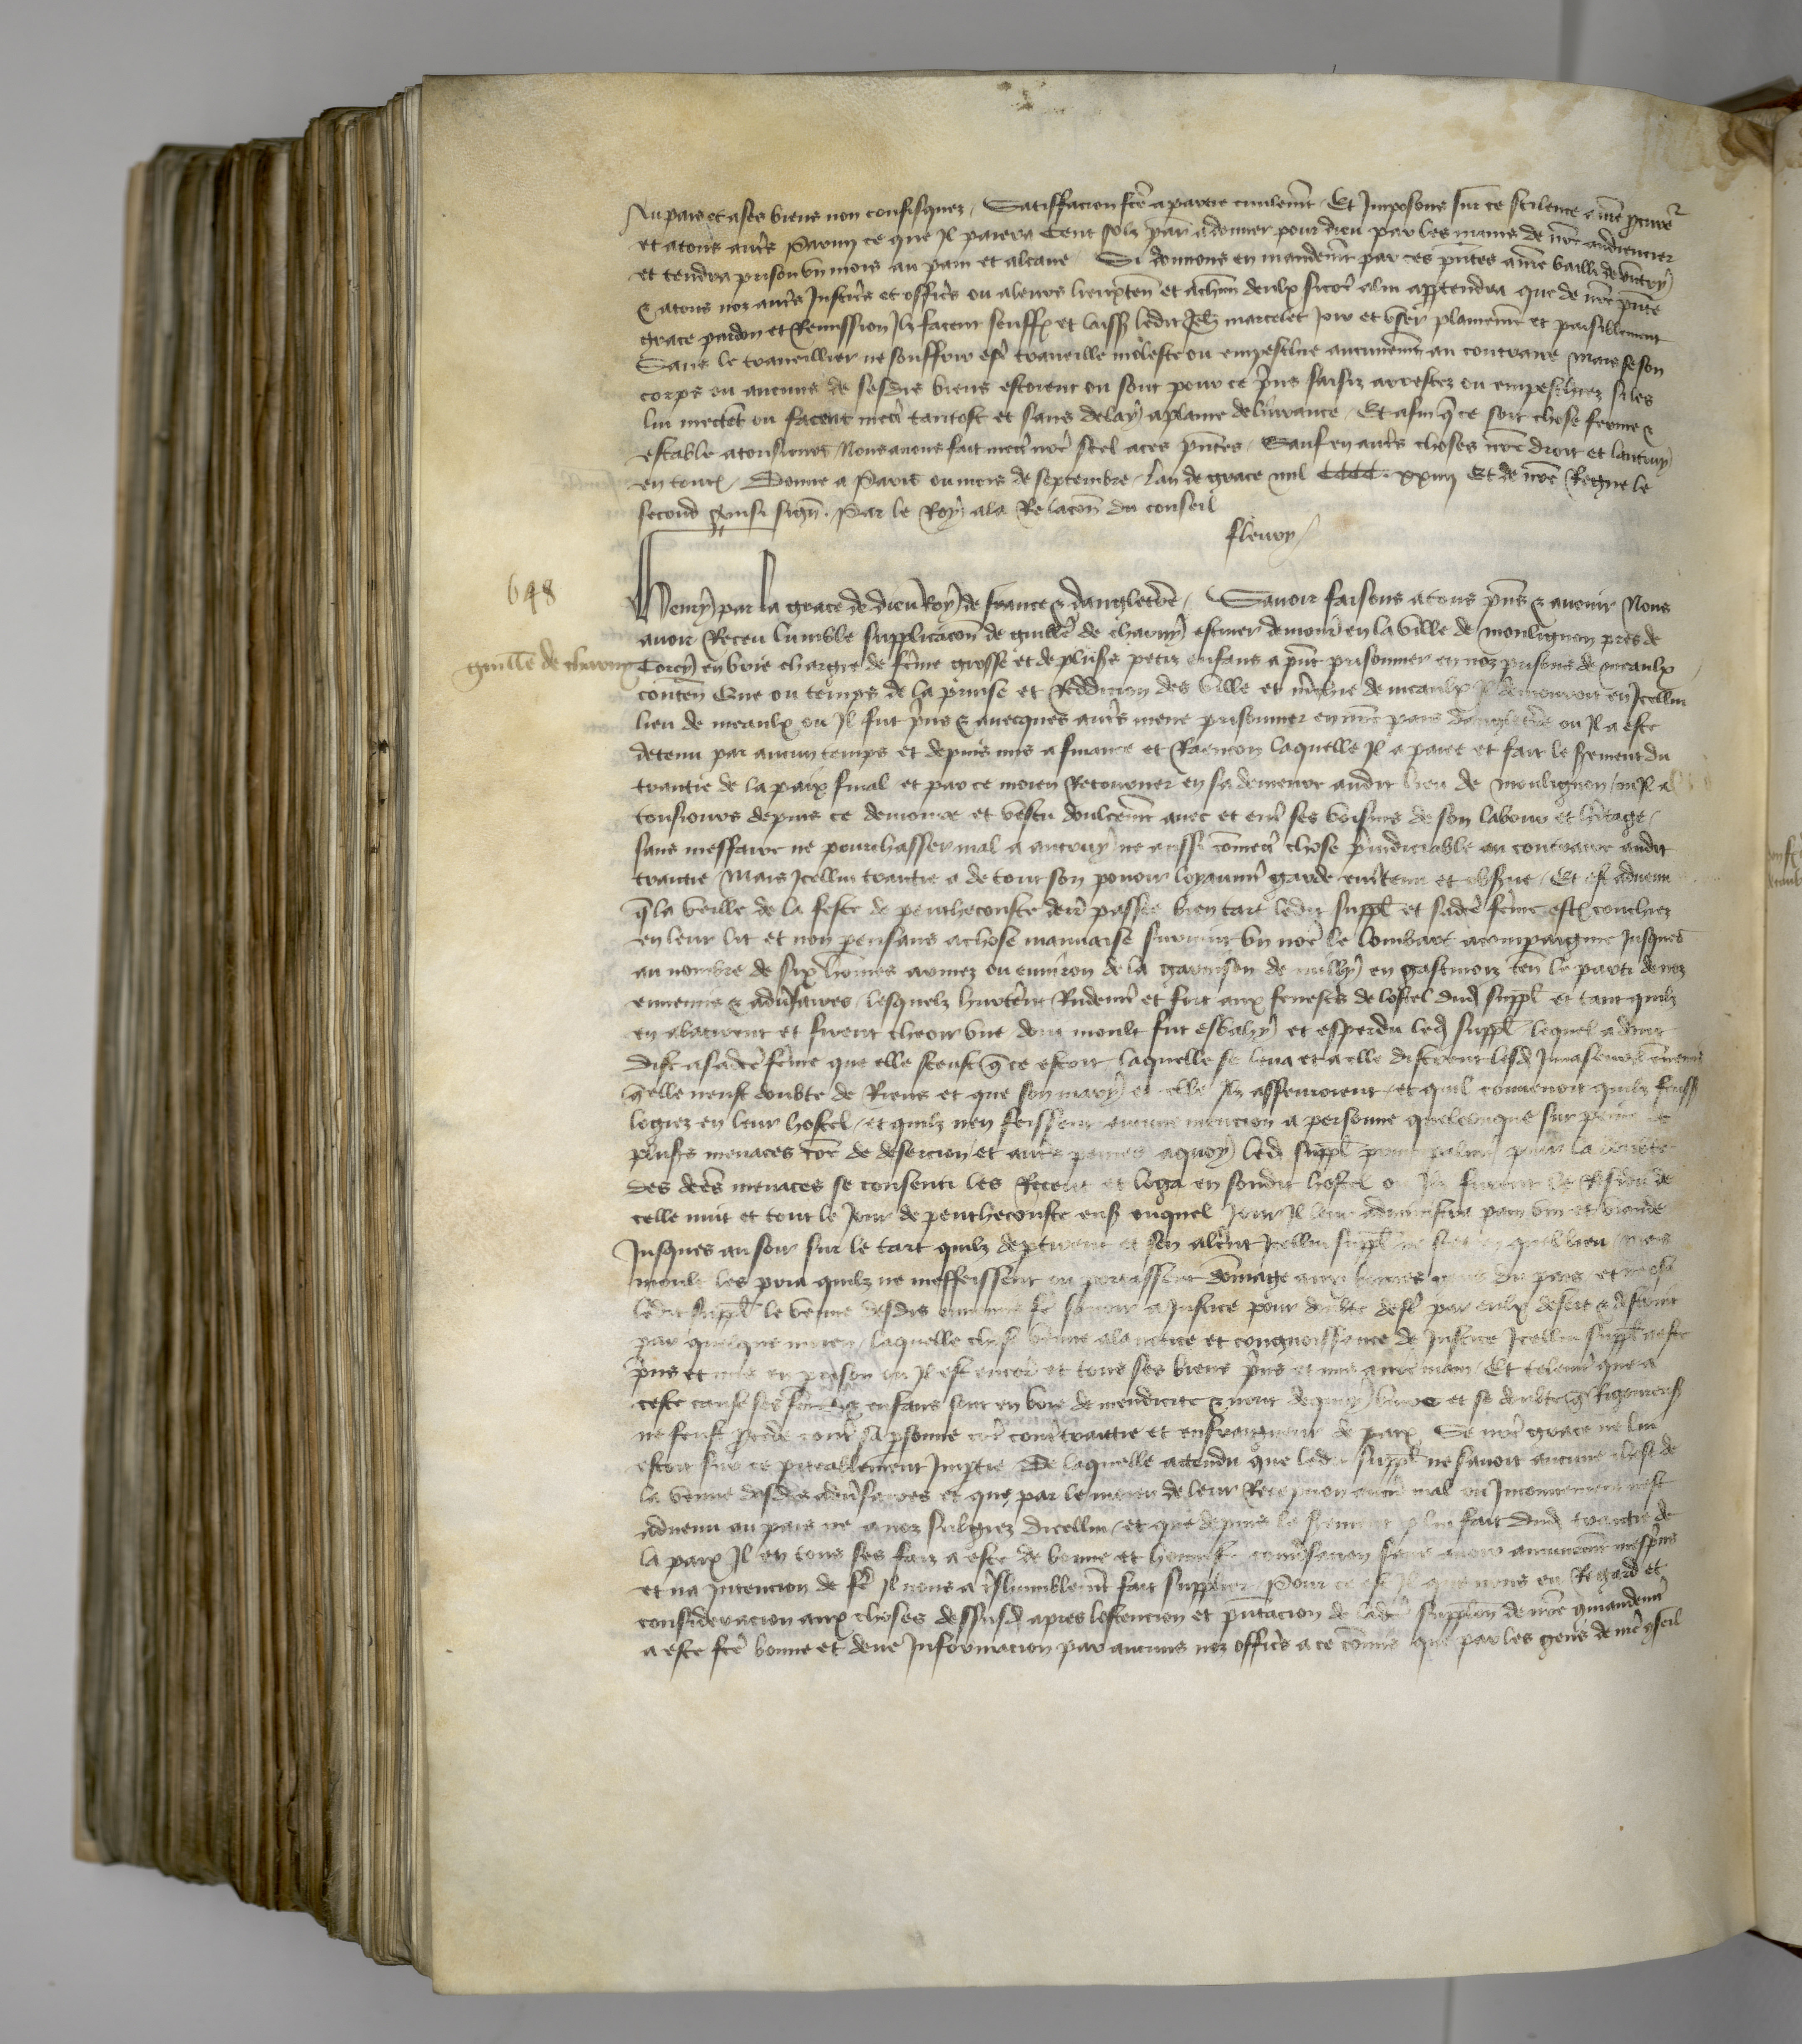 Au pais et a ses biens non confisquez / Satisfacion fcē a partie civilemt̄ Et Imposons sur ce scilence a nrē procurer
et a tous autrs Parmy ce que Il paiera Cent solz parī a donner pour dieu par les mains de nrē audiencier
et tendra prison un mois au pain et a leaue / Si donnons en mandemt̄ par ces pn̄tes a nrē bailli de vittry
& a tous noz autrs Justicrs et officrs ou a leurs lieuxten̄ et a chūn deulx sicōe a lui appartendra que de nrē pn̄te
grace pardon et Remission Ilz facent seuffr̄ et laiss̄ ledit Jeh̄ marcelet Joir et user plainemt̄ et paisiblement
Sans le traveillier ne souffrir estr̄ traveillie moleste ou empeschie aucunemt̄ au contraire Mais se son
corps ou aucuns de sesdis biens estoient ou sont pour ce prins saisiz arrestez ou empeschez si les
lui mectēt ou facent mectr̄ tantost et sans delay a plaine delivrance / Et afin q̄ ce soit chose ferme &
estable a tousiours Nous avons fait mectr̄ nrē scel a ces pn̄tes / Sauf en autrs choses nrē droit et lautruy
en toutes / Donne a Paris ou mois de septembre Lan de grace mil CCCC. xxiiij Et de nrē Regne le
second Ainsi sign̄. Par le Roy a la Relacōn du conseil
fleury /
648
Henry par la grace de dieu Roy de france & dangleterre / Savoir faisons a tous pn̄s & avenir Nous
avoir Receu lumble supplicacōn de guillē de charny demour̄ en la ville de monlignon pres de
guillē de charny
Torcy en brie chargie de fēme grosse et de plusrs petiz enfans a pn̄t prisonnier en noz prisons de meaulx
conten̄ Que ou temps de la prinse et Reddicion des ville et marchie de meaulx Il demouroit en Icellui
lieu de meaulx ou Il fut prins & avecques autrs mene prisonnier en nrē pais dangleterre ou Il a este
detenu par aucun temps et depuis mis a finance et Raencon laquelle Il a paiee et fait le serement du
traictie de la paix final et par ce moien Retourner en sa demeure audit lieu de monlignon ou Il a
tousiours depuis ce demoure et vescu doulcemt̄ avec et entr̄ ses voisins de son labour et hēritage /
sans meffaire ne pourchasser mal a autruy ne aussi cōmectr̄ chose preiudiciable au contraire audit
traictie Mais Icellui traictie a de tout son povoir loyaumt̄ garde entretenu et observe / Et est advenu
q̄ la veille de la feste de penthecouste dern̄ passee bien tart ledit suppl̄ et sadcē fēme estās couchiez
en leur lit et non pensans a chose mauvaise survint un nōe le lombart acompaignie Jusques
au nombre de six hōmes armez ou environ de la garnison de milly en gastinois ten̄ le parti de noz
ennemis & adversaires / lesquelz hurtērent Rudemt̄ et fort aux fenestrs de lostel dud̄ suppl̄ et tant quilz
en abatirent et firent cheoir une dont moult fut esbahy et esperdu led̄ suppl̄ lequel adonc
dist a sadcē fēme que elle sceust q̄ ce estoit laquelle se leva et a elle distrent lesd̄
q̄lle neust doubte de Riens et que son mary et elle Ilz asseuroient et quil convenoit quilz feuss̄
logiez en leur hostel / et quilz nen feissent aucune mencion a personne quelconque sur peine de
plusrs menaces cōe de desercion et autrs peines a quoy led̄ suppl̄ pour la doubte
des dcēs menaces se consenti les Receut et loga en sondit hostel ou Ilz furent le Residu de
celle nuit et tout le Jour de penthecouste ens̄ ouquel Jour Il leur administra pain vin et viande
Jusques au soir sur le tart quilz deptirent et sen alērent Icellui suppl̄ ne scet en quel lieu / mais
moult les pria quilz ne meffeissent ou portassent dōmage aux bonnes gens du pais / et nosa
ledit suppl̄ la venue desdis ennemis fē savoir a Justice pour doubte destr̄ par eulx desert & destruit
par quelque moien / laquelle chose venue a la notice et congnoissance de Justice Icellui suppl̄ a este
prins et mis en prison ou Il est encor̄ et tous ses biens prins et mis a nrē main / Et telemt̄ que a
ceste cause ses fēme & enfans sont en voie de mendicite & nont de quoy vivre et se doubte q̄ Rigoreus̄
ne feust procede contr̄ sa personne cōe contr̄ traictie et enfraigneur de paix Se nrē grace ne lui
estoit sur ce piteablement Impartie De laquelle actendu que led̄ suppl̄ ne savoit aucune chose de
la venue desdis adversaires et que par le moien de leur Recepcion autr̄ mal ou Inconvenient nest
advenu ou pais ne a noz subgiez dicellui / et que depuis le serement p lui fait dud̄ traictie de
la paix Il en tous ses faiz a este de bonne et honneste conversacion sans avoir aucunemt̄ mesprins
et na Intencion de fē Il nous a treshumblemt̄ fait supplier / Pour ce est Il que nous eu Regard et
consideracion aux choses dessusd̄ apres lostencion et pn̄tacion de ladcē supplicōn de nrē cōmandemt̄
a este fcē bonne et deue Informacion par aucuns noz officrs a ce cōmis que par les gens de nrē conseil